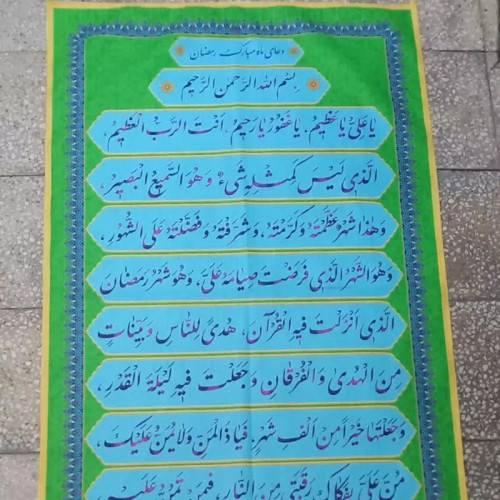 دعای ماه مبارک رمضان
بِسْمِ اللهِ الرَّحْمنِ الرَّحیمِ
یا عَلِیُّ یا عَظیمُ، یا غَفُورُ یا رَحیمُ، اَنْتَ الرَّبُّ الْعَظیمُ،
الَّذی لَیْسَ کَمِثْلِهِ شَیْءٌ وَهُوَ السَّمیعُ الْبَصیرُ،
وَهٰذا شَهْرٌ عَظَّمْتَهُ وَکَرَّمْتَهُ، وَشَرَّفْتَهُ وَفَضَّلْتَهُ عَلَی الشُّهُورِ،
وَهُوَ الشَّهْرُ الَّذی فَرَضْتَ صِیامَهُ عَلَیَّ، وَهُوَ شَهْرُ رَمَضانَ
الَّذی اَنْزَلْتَ فیهِ الْقُرْآنَ، هُدیً لِلنّاسِ وَبَیِّناتٍ
مِنَ الْهُدیٰ وَالْفُرْقانِ وَجَعَلْتَ فیهِ لَیْلَةَ الْقَدْرِ،
وَجَعَلْتَها خَیْراً مِنْ اَلْفِ شَهْرٍ فَیا ذَا الْمَنِّ وَلا یُمَنُّ عَلَیْکَ،
مُنَّ عَلَیَّ بِفَکاکِ رَقَبَتی مِنَ النّارِ، فیمَنْ تَمُنُّ عَلَیْهِ